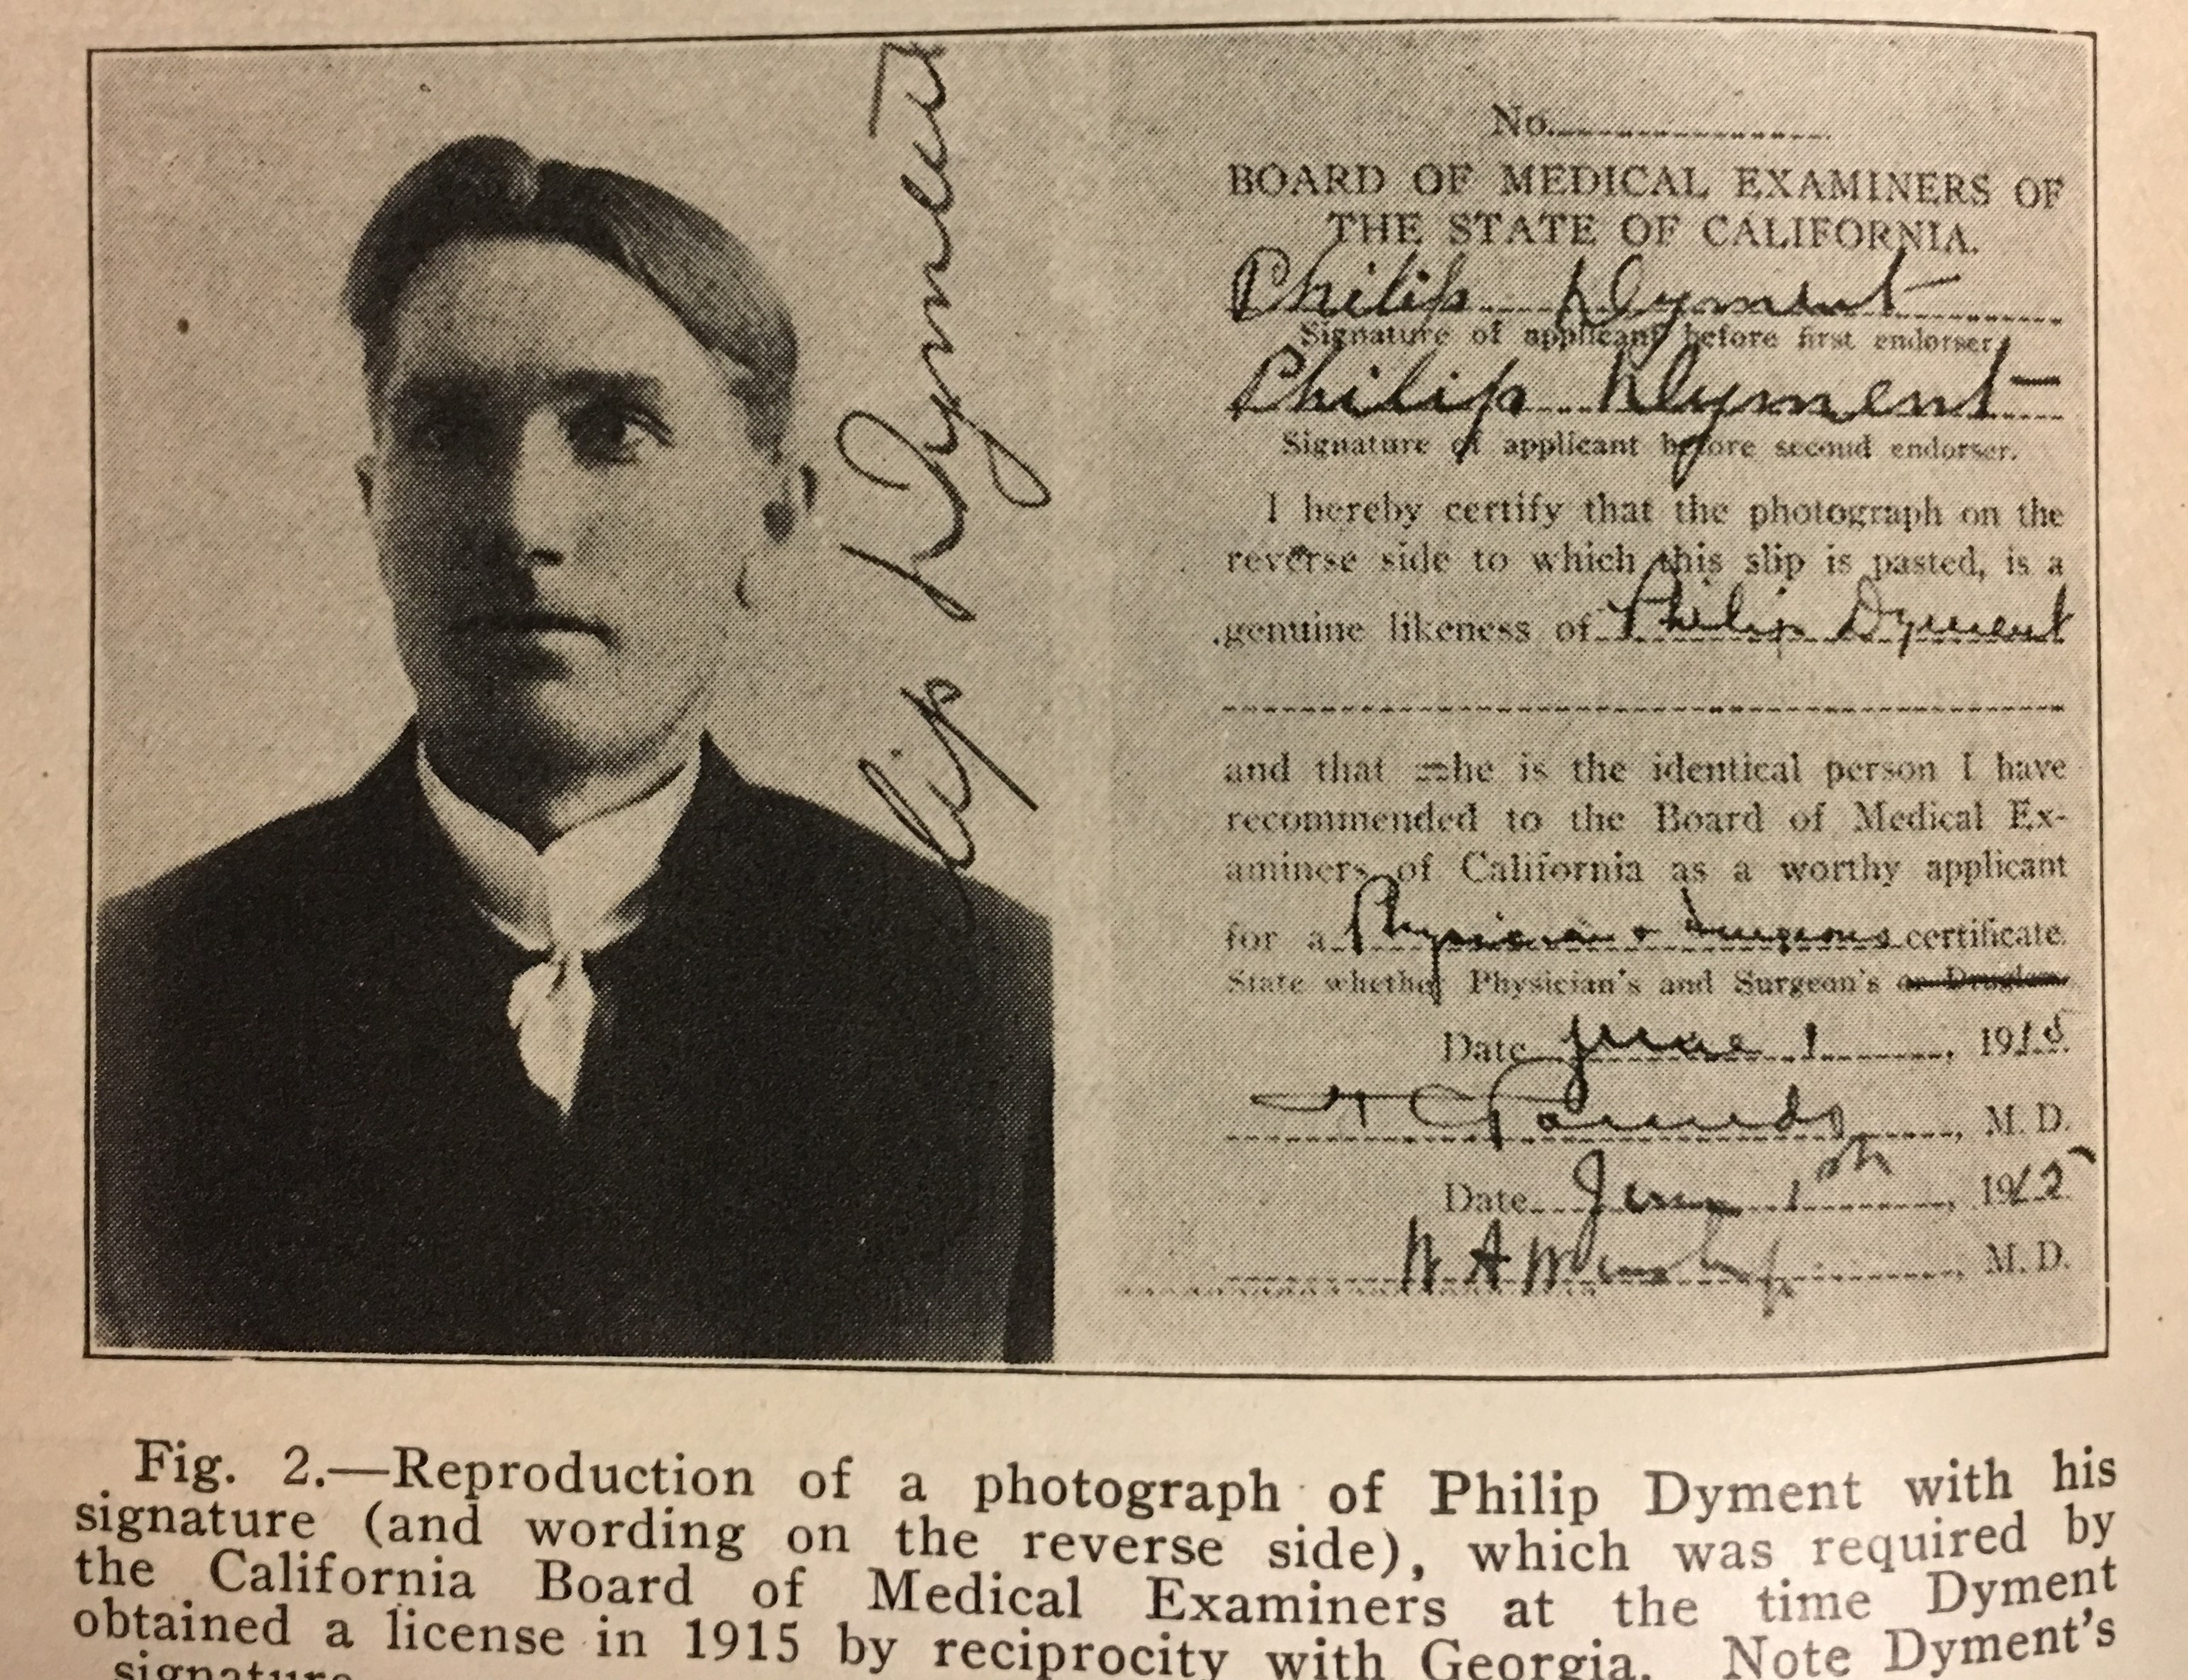 lip Dyment
No.
BOARD OF MEDICAL EXAMINERS OF
THE STATE OF CALIFORNIA.
Philip Dyment
Signature of applicant before first endorser.
Philip Dyment
Signature of applicant before second endorser.
I hereby certify that the photograph on the
reverse side to which this slip is pasted, is a
genuine likeness of Philip Dyment
and that he is the identical person I have
recommended to the Board of Medical Ex-
aminers of California as a worthy applicant
for a Physician & Surgeons certificate.
State whether Physician's and Surgeon's or
Date June 1, 1915.
, M. D.
Date June 1, 1915
, M. D.
Fig. 2.—Reproduction of a photograph of Philip Dyment with his
signature (and wording on the reverse side), which was required by
the California Board of Medical Examiners at the time Dyment
obtained a license in 1915 by reciprocity with Georgia. Note Dyment's
signature